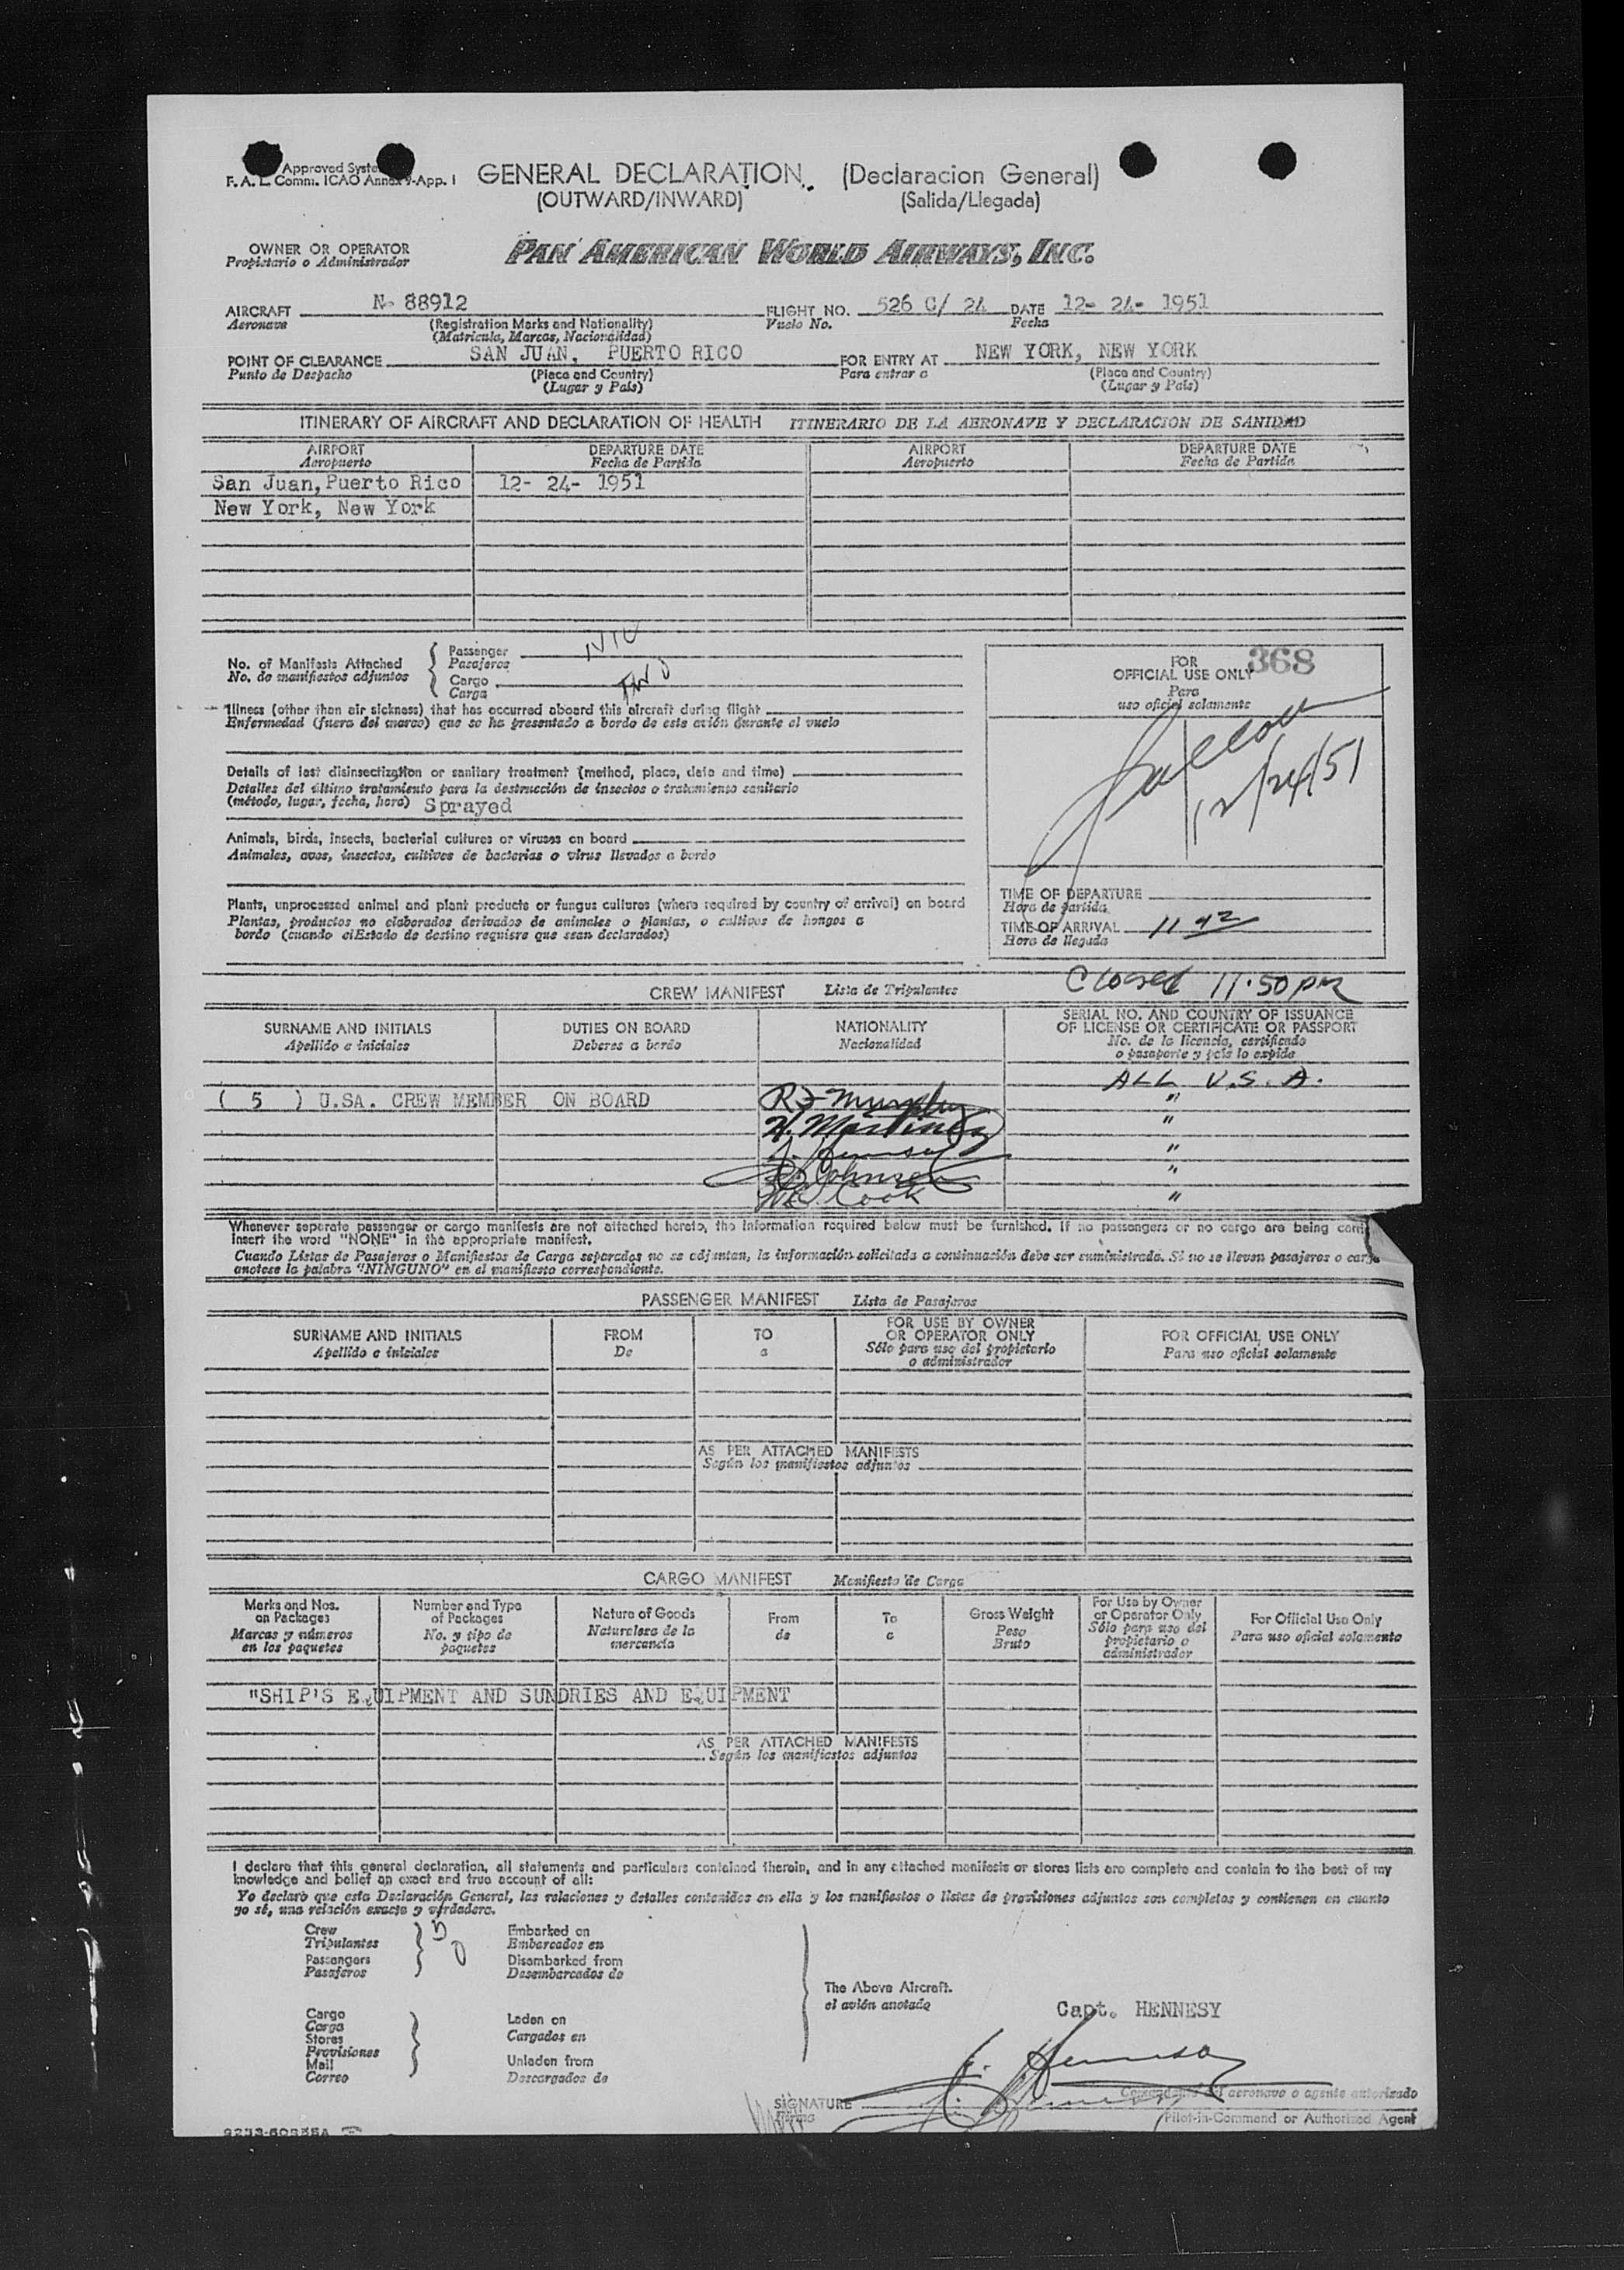 Approved System
F. A. L. Comm. ICAO Annex 9-App. I
GENERAL DECLARATION (Declaracion General)
(OUTWARD/INWARD) (Salida/Llegada)
OWNER OR OPERATOR
Propietario o Administrador
PAN AMERICAN WORLD AIRWAYS, INC.
AIRCRAFT N- 88912 FLIGHT NO. 526 C/ 24 DATE 12- 24- 1951
Aeronave (Registration Marks and Nationality) Vuelo No. Fecha
(Matricula, Marcas, Nacionalidad)
POINT OF CLEARANCE SAN JUAN, PUERTO RICO FOR ENTRY AT NEW YORK, NEW YORK
Punto de Despacho (Place and Country) Para entrar a (Place and Country)
(Lugar y País) (Lugar y País)
ITINERARY OF AIRCRAFT AND DECLARATION OF HEALTH ITINERARIO DE LA AERONAVE Y DECLARACION DE SANIDAD
AIRPORT DEPARTURE DATE AIRPORT DEPARTURE DATE
Aeropuerto Fecha de Partida Aeropuerto Fecha de Partida
San Juan, Puerto Rico 12- 24- 1951
New York, New York
No. of Manifests Attached
No. de manifiestos adjuntos
Passenger NIL
Pasajeros
Cargo TWO
Carga
Illness (other than air sickness) that has occurred aboard this aircraft during flight
Enfermedad (fuera del mareo) que se ha presentado a bordo de este avión durante el vuelo
Details of last disinsectization or sanitary treatment (method, place, date and time)
Detalles del último tratamiento para la destrucción de insectos o tratamiento sanitario
(método, lugar, fecha, hora) Sprayed
Animals, birds, insects, bacterial cultures or viruses on board
Animales, aves, insectos, cultivos de bacterias o virus llevados a bordo
Plants, unprocessed animal and plant products or fungus cultures (where required by country of arrival) on board
Plantas, productos no elaborados derivados de animales o plantas, o cultivos de hongos a
bordo (cuando el Estado de destino requiere que sean declarados)
FOR 368
OFFICIAL USE ONLY
Para
uso oficial solamente
12/24/51
TIME OF DEPARTURE
Hora de partida
TIME OF ARRIVAL 11 42
Hora de llegada
Closed 11:50 PM
CREW MANIFEST Lista de Tripulantes
SURNAME AND INITIALS DUTIES ON BOARD NATIONALITY SERIAL NO. AND COUNTRY OF ISSUANCE
Apellido e iniciales Deberes a bordo Nacionalidad OF LICENSE OR CERTIFICATE OR PASSPORT
No. de la licencia, certificado
o pasaporte y país lo expide
ALL U.S.A.
( 5 ) U.SA. CREW MEMBER ON BOARD RJ Murphy "
H. Martinez "
J. Hennesy "
Johnson "
Cook "
Whenever separate passenger or cargo manifests are not attached hereto, the information required below must be furnished. If no passengers or no cargo are being carri
insert the word "NONE" in the appropriate manifest.
Cuando Listas de Pasajeros o Manifiestos de Carga separados no se adjuntan, la información solicitada a continuación debe ser suministrada. Si no se llevan pasajeros o carga
anotese la palabra "NINGUNO" en el manifiesto correspondiente.
PASSENGER MANIFEST Lista de Pasajeros
SURNAME AND INITIALS FROM TO FOR USE BY OWNER OR OPERATOR ONLY FOR OFFICIAL USE ONLY
Apellido e iniciales De a Sólo para uso del propietario o administrador Para uso oficial solamente
AS PER ATTACHED MANIFESTS
Según los manifiestos adjuntos
CARGO MANIFEST Manifiesto de Carga
Marks and Nos. on Packages Number and Type of Packages Nature of Goods From To Gross Weight For Use by Owner or Operator Only For Official Use Only
Marcas y números en los paquetes No. y tipo de paquetes Naturaleza de la mercancía de a Peso Bruto Sólo para uso del propietario o administrador Para uso oficial solamente
"SHIP'S EQUIPMENT AND SUNDRIES AND EQUIPMENT
AS PER ATTACHED MANIFESTS
Según los manifiestos adjuntos
I declare that this general declaration, all statements and particulars contained therein, and in any attached manifests or stores lists are complete and contain to the best of my
knowledge and belief an exact and true account of all:
Yo declaro que esta Declaración General, las relaciones y detalles contenidos en ella y los manifiestos o listas de provisiones adjuntos son completos y contienen en cuanto
yo sé, una relación exacta y verdadera.
Crew 5 Embarked on
Tripulantes Embarcados en
Passengers 0 Disembarked from
Pasajeros Desembarcados de
The Above Aircraft.
el avión anotado
Cargo
Carga
Stores
Provisiones
Mail
Correo
Laden on
Cargados en
Unladen from
Descargados de
Capt. HENNESY
J. Hennesy
Comandante del aeronave o agente autorizado
SIGNATURE
Firma
Pilot-in-Command or Authorized Agent